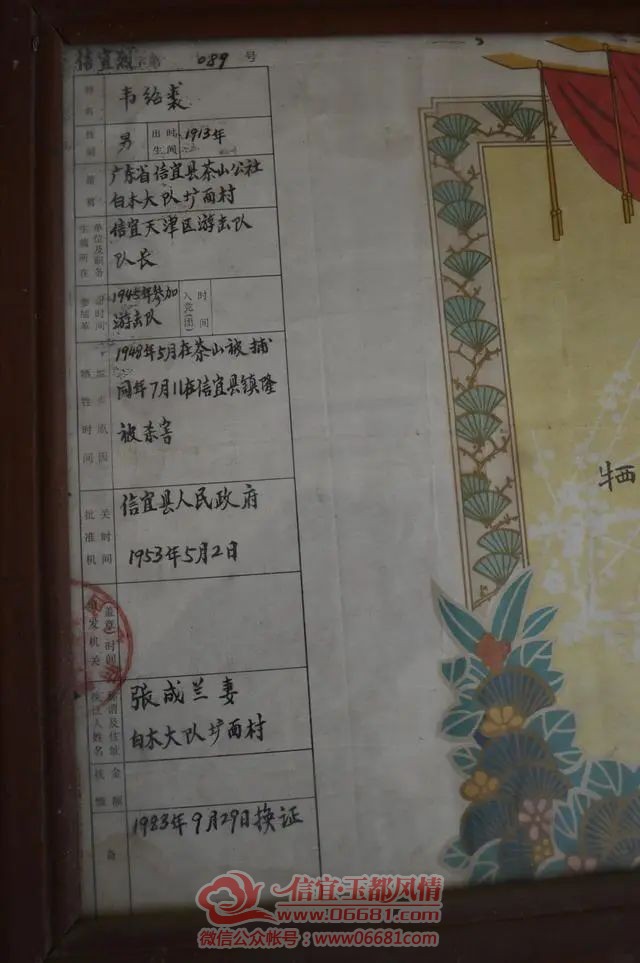 信宜烈字第 089 号
姓名 韦绍裘
性别 男 出生时间 1913年
籍贯 广东省信宜县茶山公社
白木大队圹面村
生前所在单位及职务 信宜天津区游击队
队长
参加革命时间 1945年参加
游击队 入党(团)时间
牺牲时间 1948年5月在茶山被捕
同年7月11在信宜县镇隆
被杀害
批准机关时间 信宜县人民政府
1953年5月2日
发机关(盖章)时间
张成兰 妻
白木大队圹面村
抚恤金额
备
1983年9月29日换证
牺
信宜·玉都风情
www.06681.com
微信公众帐号：www06681com